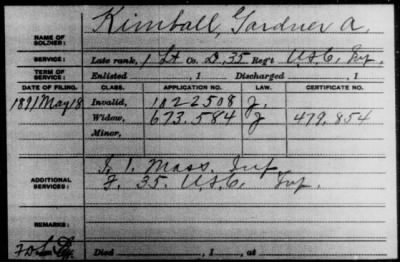 Kimball, Gardner A.
NAME OF SOLDIER:
SERVICE: Late rank, 1 Lt Co. D, 35 Reg't U.S.C. Inf.
TERM OF SERVICE: Enlisted , 1 Discharged , 1
DATE OF FILING. CLASS. APPLICATION NO. LAW. CERTIFICATE NO.
1891 May 18 Invalid, 1022508 J.
Widow, 673.584 J 479.854
Minor,
ADDITIONAL SERVICES: I. 1. Mass. Inf
F. 35. U.S.C. Inf.
REMARKS:
Died , 1 , at